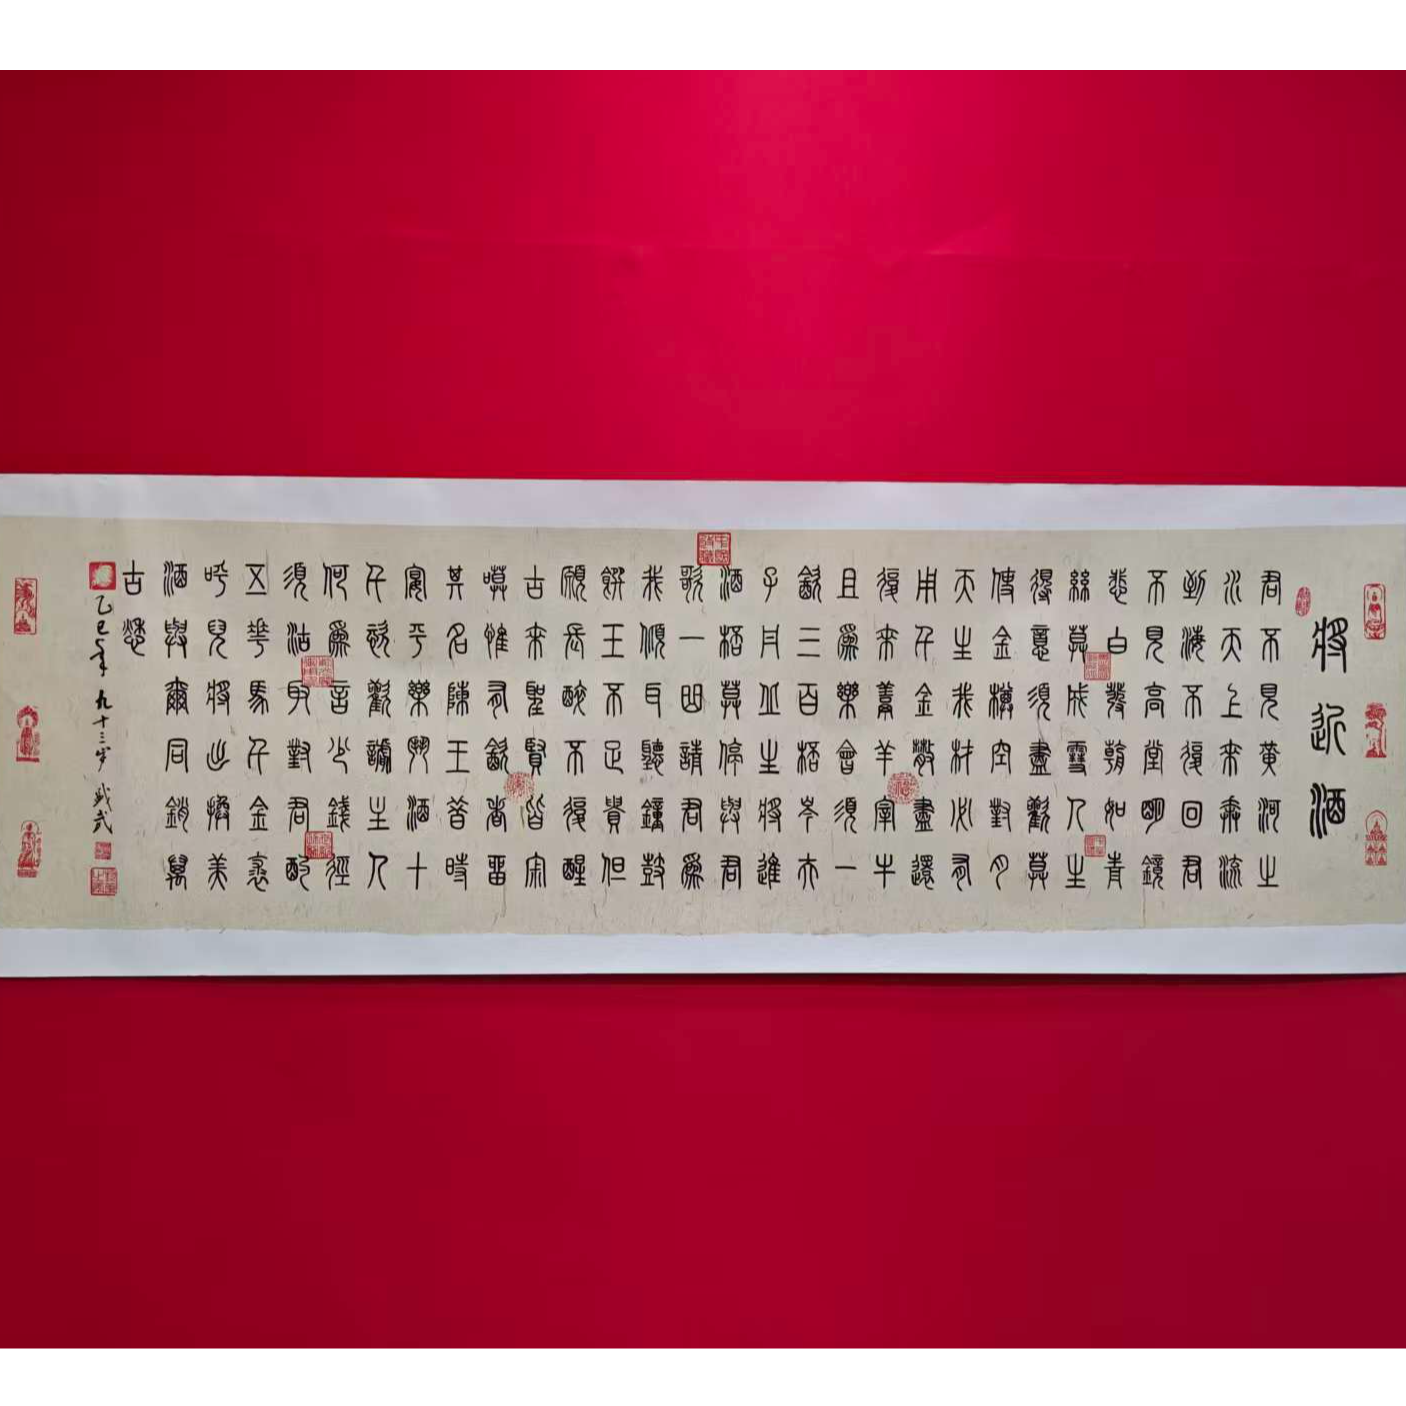 將近酒
君不見黃河之
水天上來奔流
到海不復回君
不見高堂明鏡
悲白髮朝如青
絲莫成雪人生
得意須盡歡莫
使金樽空對月
天生我材必有
用千金散盡還
復來羹羊宰牛
且爲樂會須一
飲三百桮岑夫
子丹丘生將進
酒桮莫停與君
歌一曲請君爲
我傾耳聽鐘鼓
饌玉不足貴但
願長醉不復醒
古來聖賢皆寂
寞惟有飲者留
其名陳王昔時
宴平樂鬥酒十
千恣歡謔主人
何爲言少錢徑
須沽取對君酌
五花馬千金裘
呼兒將出換美
酒與爾同銷萬
古愁
乙巳年九十三歲